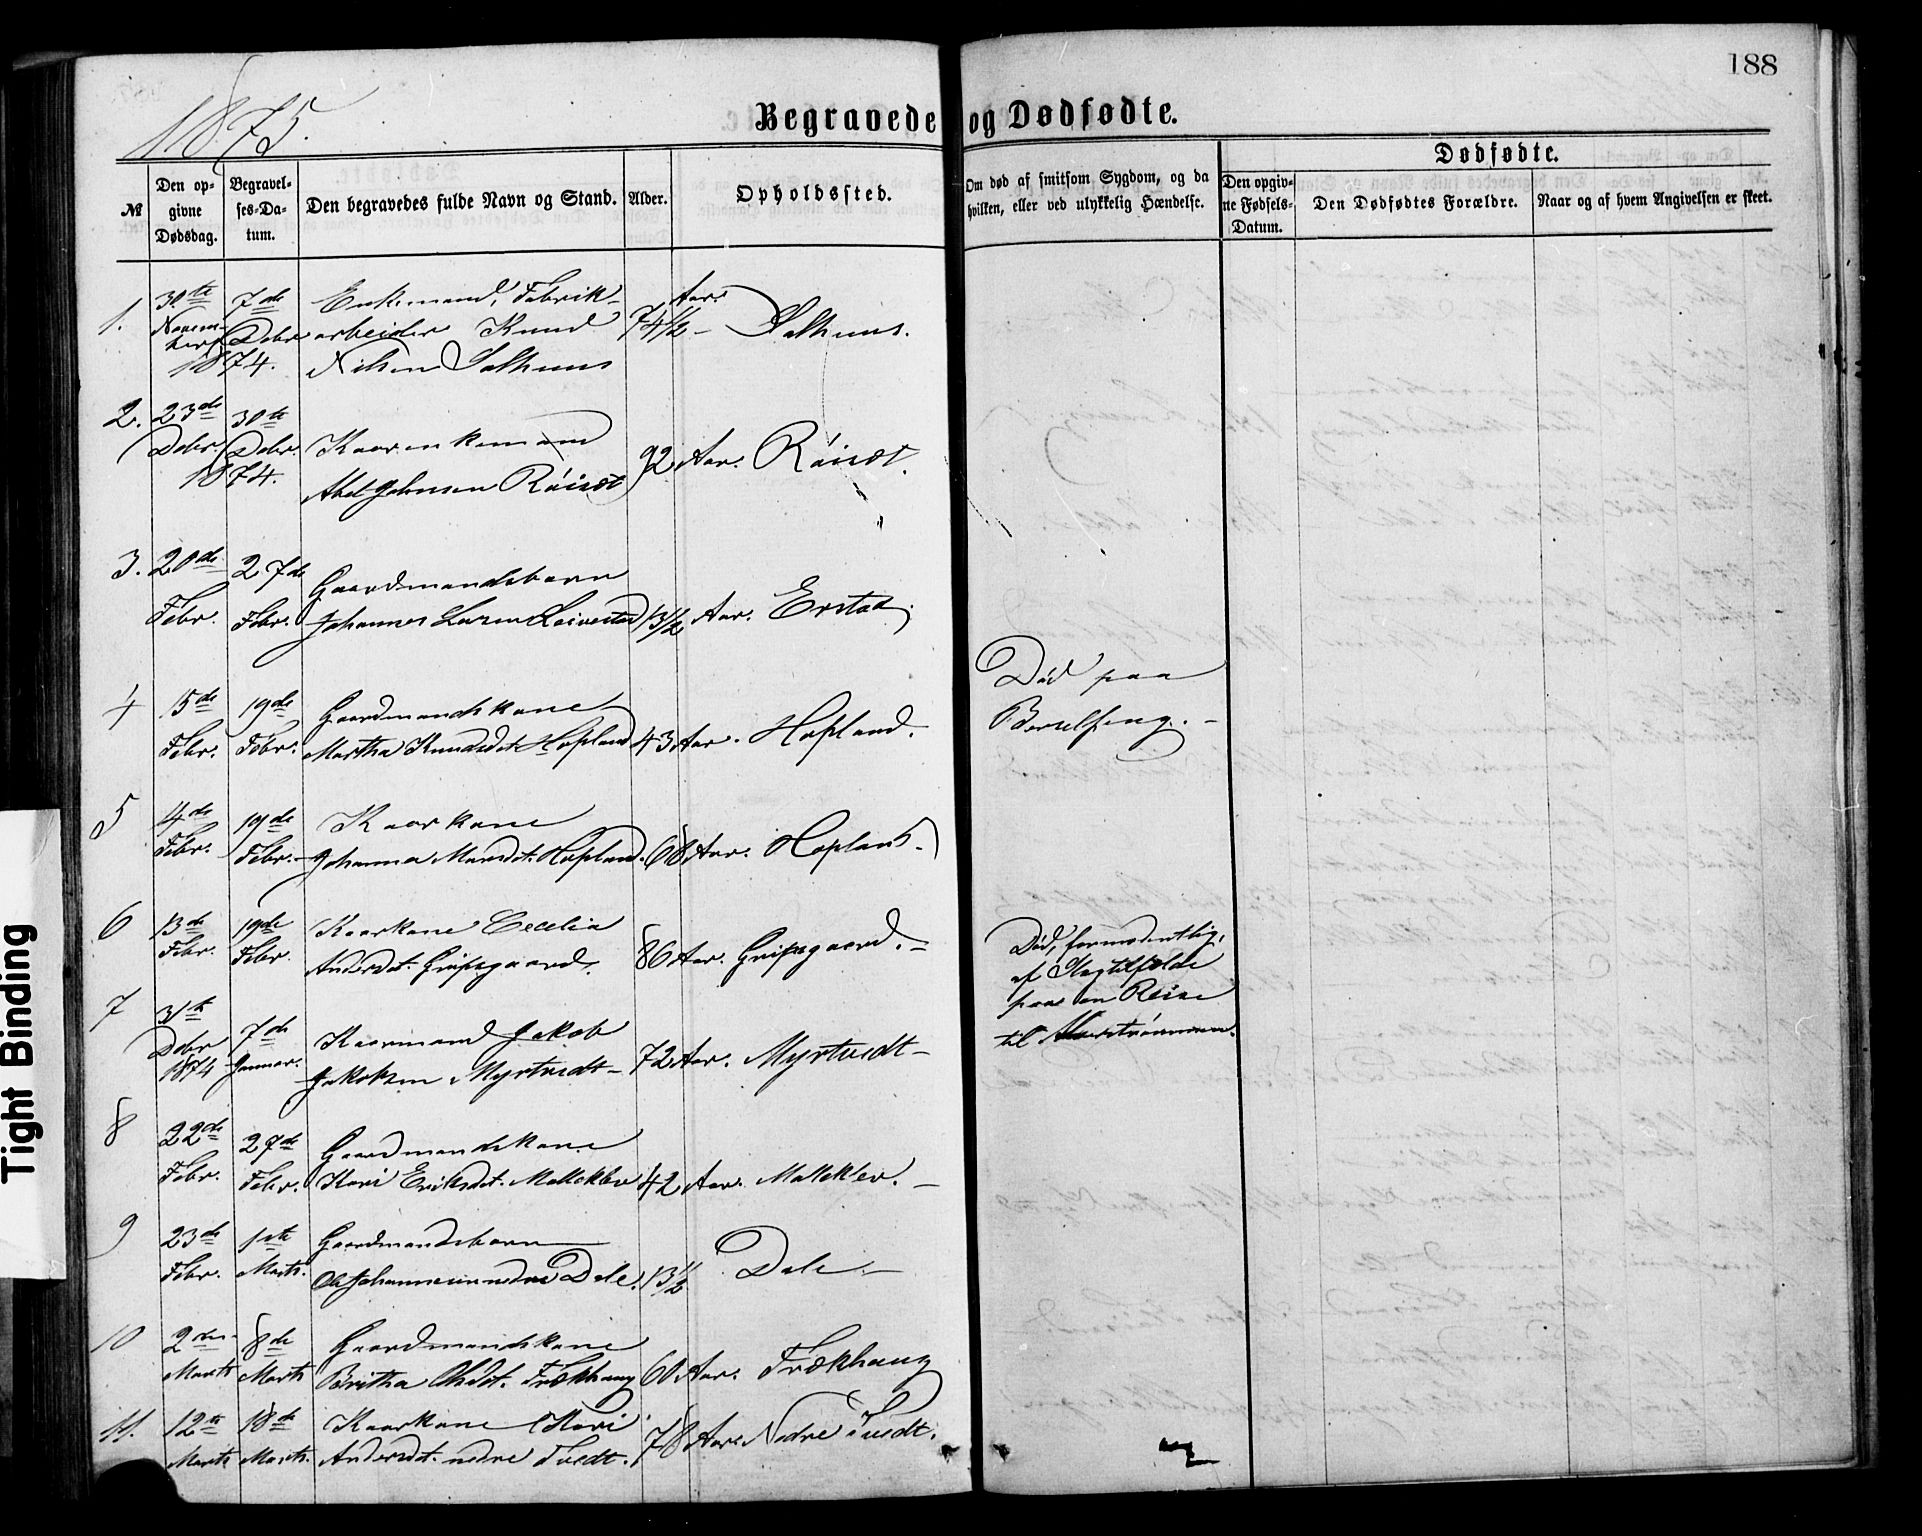 188
1875.
Begravede og Dødfødte.
Dødfødte.
№
Den opgivne Dødsdag.
Begravelses-Datum.
Den begravedes fulde Navn og Stand.
Alder.
Opholdssted.
Om død af smitsom Sygdom, og da hvilken, eller ved ulykkelig Hændelse.
Den opgivne Fødsels-Datum.
Den Dødfødtes Forældre.
Naar og af hvem Angivelsen er skeet.
1. 30te 7de Enkemand, Fabrik- Aar
Novem- Debr arbeider Knud 74 1/2 – Salhuus.
ber 1874. Nilsen Salhuus
2. 23de 30te
Debr. Debr. Kaarenkemand 92 Aar. Röiset.
1874. Abel Johnsen Röiset
3. 20de 27de Gaardmandsbarn
Febr. Febr. Johannes Larsen 13 1/2 Aar. Erstad.
4 15de 19de Gaardmandskone
Febr. Febr. Martha Knudsdt. Hopland 43 Aar. Hopland.
Död paa
Barselseng. –
5 4de 19de Kaarkone
Febr. Febr. – Johanna Monsdt. Hopland. 68 Aar. Hopland. –
6 13de 19de Kaarkone Cecelia
Febr. Febr. Andersdt. Gripsgaard. 86 Aar. Gripsgaard. –
Död, formodentlig,
af Slagtilfælde
paa en Reise
til
7 31te
Debr 7de Kaarmand Jakob
1874 Januar. Jakobsen Myrtvedt – 72 Aar. Myrtvedt –
8 22de 27de Gaardmandskone
Febr. Febr. Kari Eriksdt. Mølleklev 42 Aar. Mølleklev. –
9 23de 1ste Gaardmandsbarn
Febr. Marts. Johannesen nedre Dale. 13 1/2 Dale –
10 2den 8de Gaardmandskone
Marts Marts Britha Olsdt. Trækhaug 60 Aar. Trækhaug
11. 12te 18de Kaarkone Kari
Marts Marts. Andersdt. nedre Tvedt. 78 Aar. Nedre Tvedt.
Tight Binding